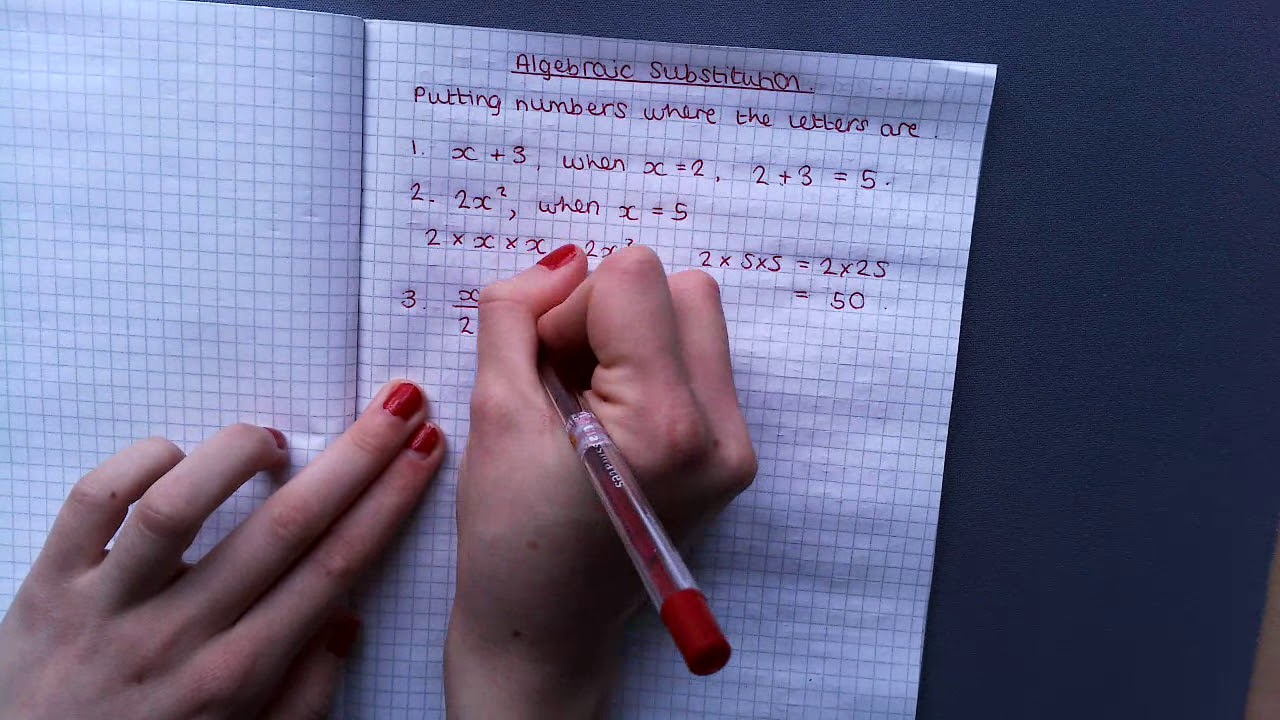 Algebraic Substitution.
Putting numbers where the letters are.
1. x + 3, when x = 2, 2 + 3 = 5.
2. 2x², when x = 5
2 × x × x 2x² 2 × 5 × 5 = 2 × 25
= 50.
3. x
2